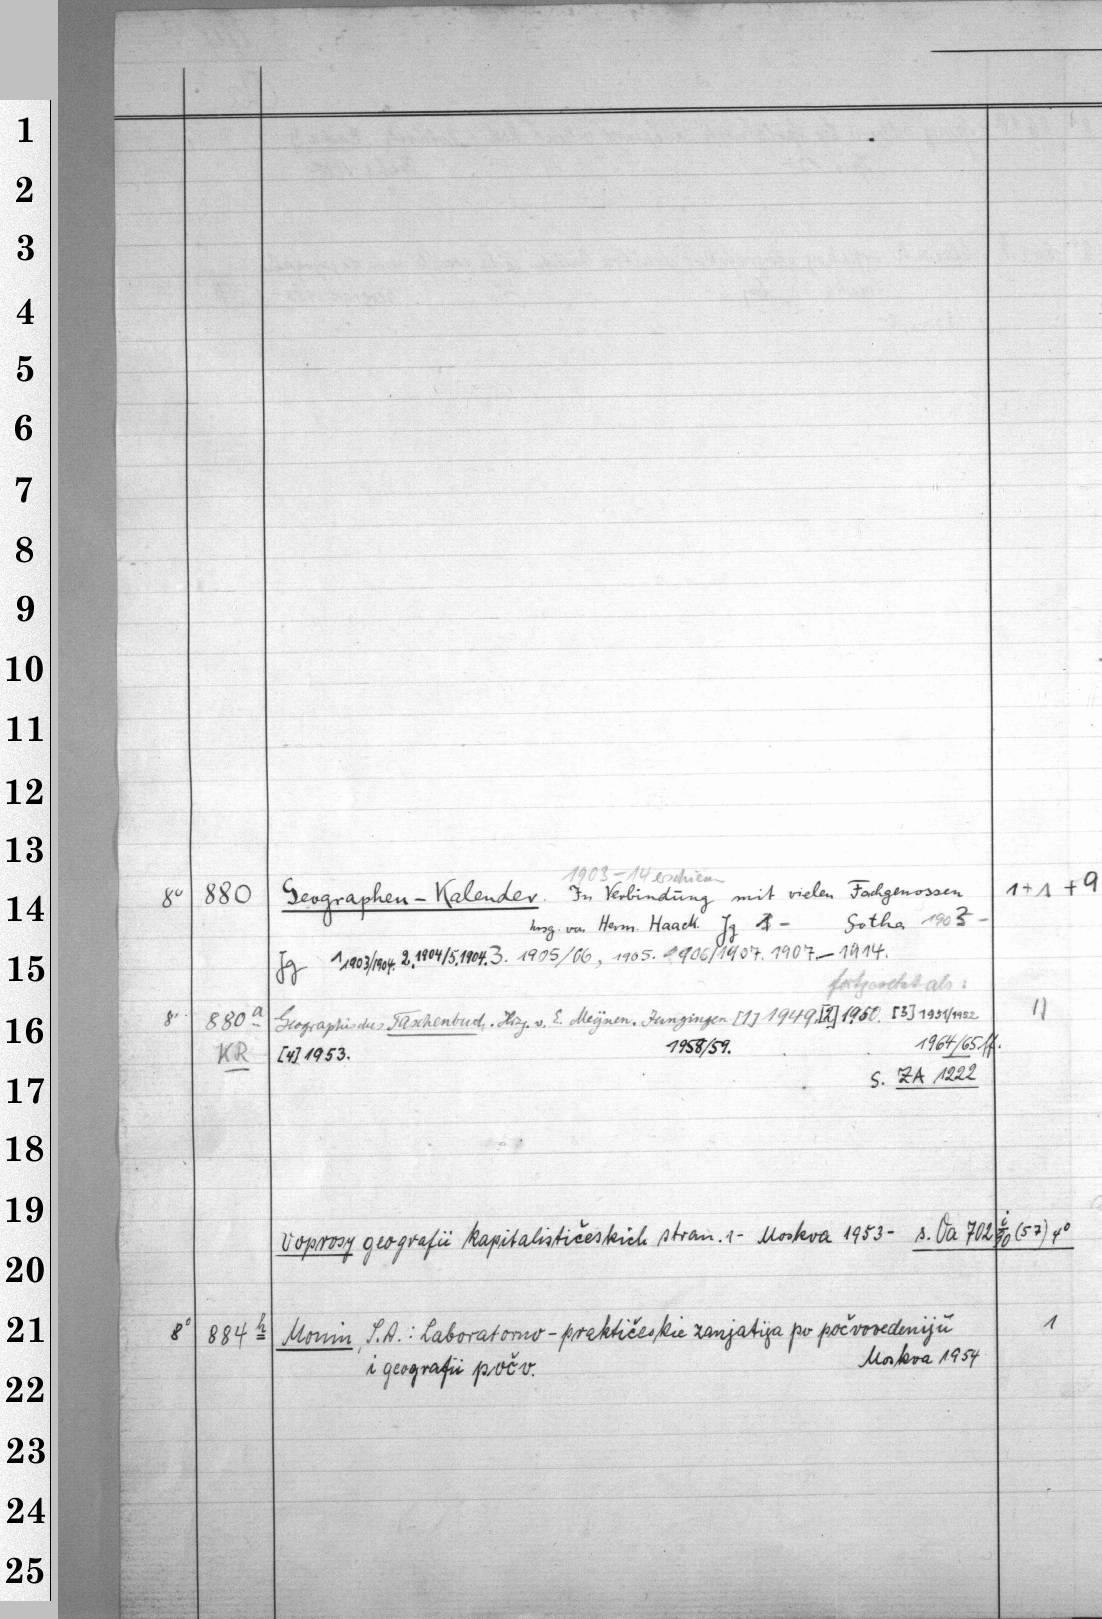 1
2
3
4
5
6
7
8
9
10
11
12
13
1903-14 erschien
14 8° 880 Geographen-Kalender. In Verbindung mit vielen Fachgenossen 1+1+9
hrsg. von Herm. Haack. Jg 1- Gotha 1903-
15 Jg 1 1903/1904. 2. 1904/5, 1904. 3. 1905/06, 1905. 1906/1907. 1907-1914.
fortgesetzt als:
16 8° 880 a Geographisches Taschenbuch. Hrsg. v. E. Meynen. Jungingen [1] 1949. [2] 1950. [3] 1951/1952 1)
KR [4] 1953. 1958/59. 1964/65 ff.
17 s. ZA 1222
18
19
Voprosy geografii kapitalističeskich stran. 1- Moskva 1953- s. Va 702 i/90 (57) 4°
20
21 8° 884 h Monin, S.A.: Laboratorno-praktičeskie zanjatija po počvovedeniju 1
i geografii počv. Moskva 1954
22
23
24
25